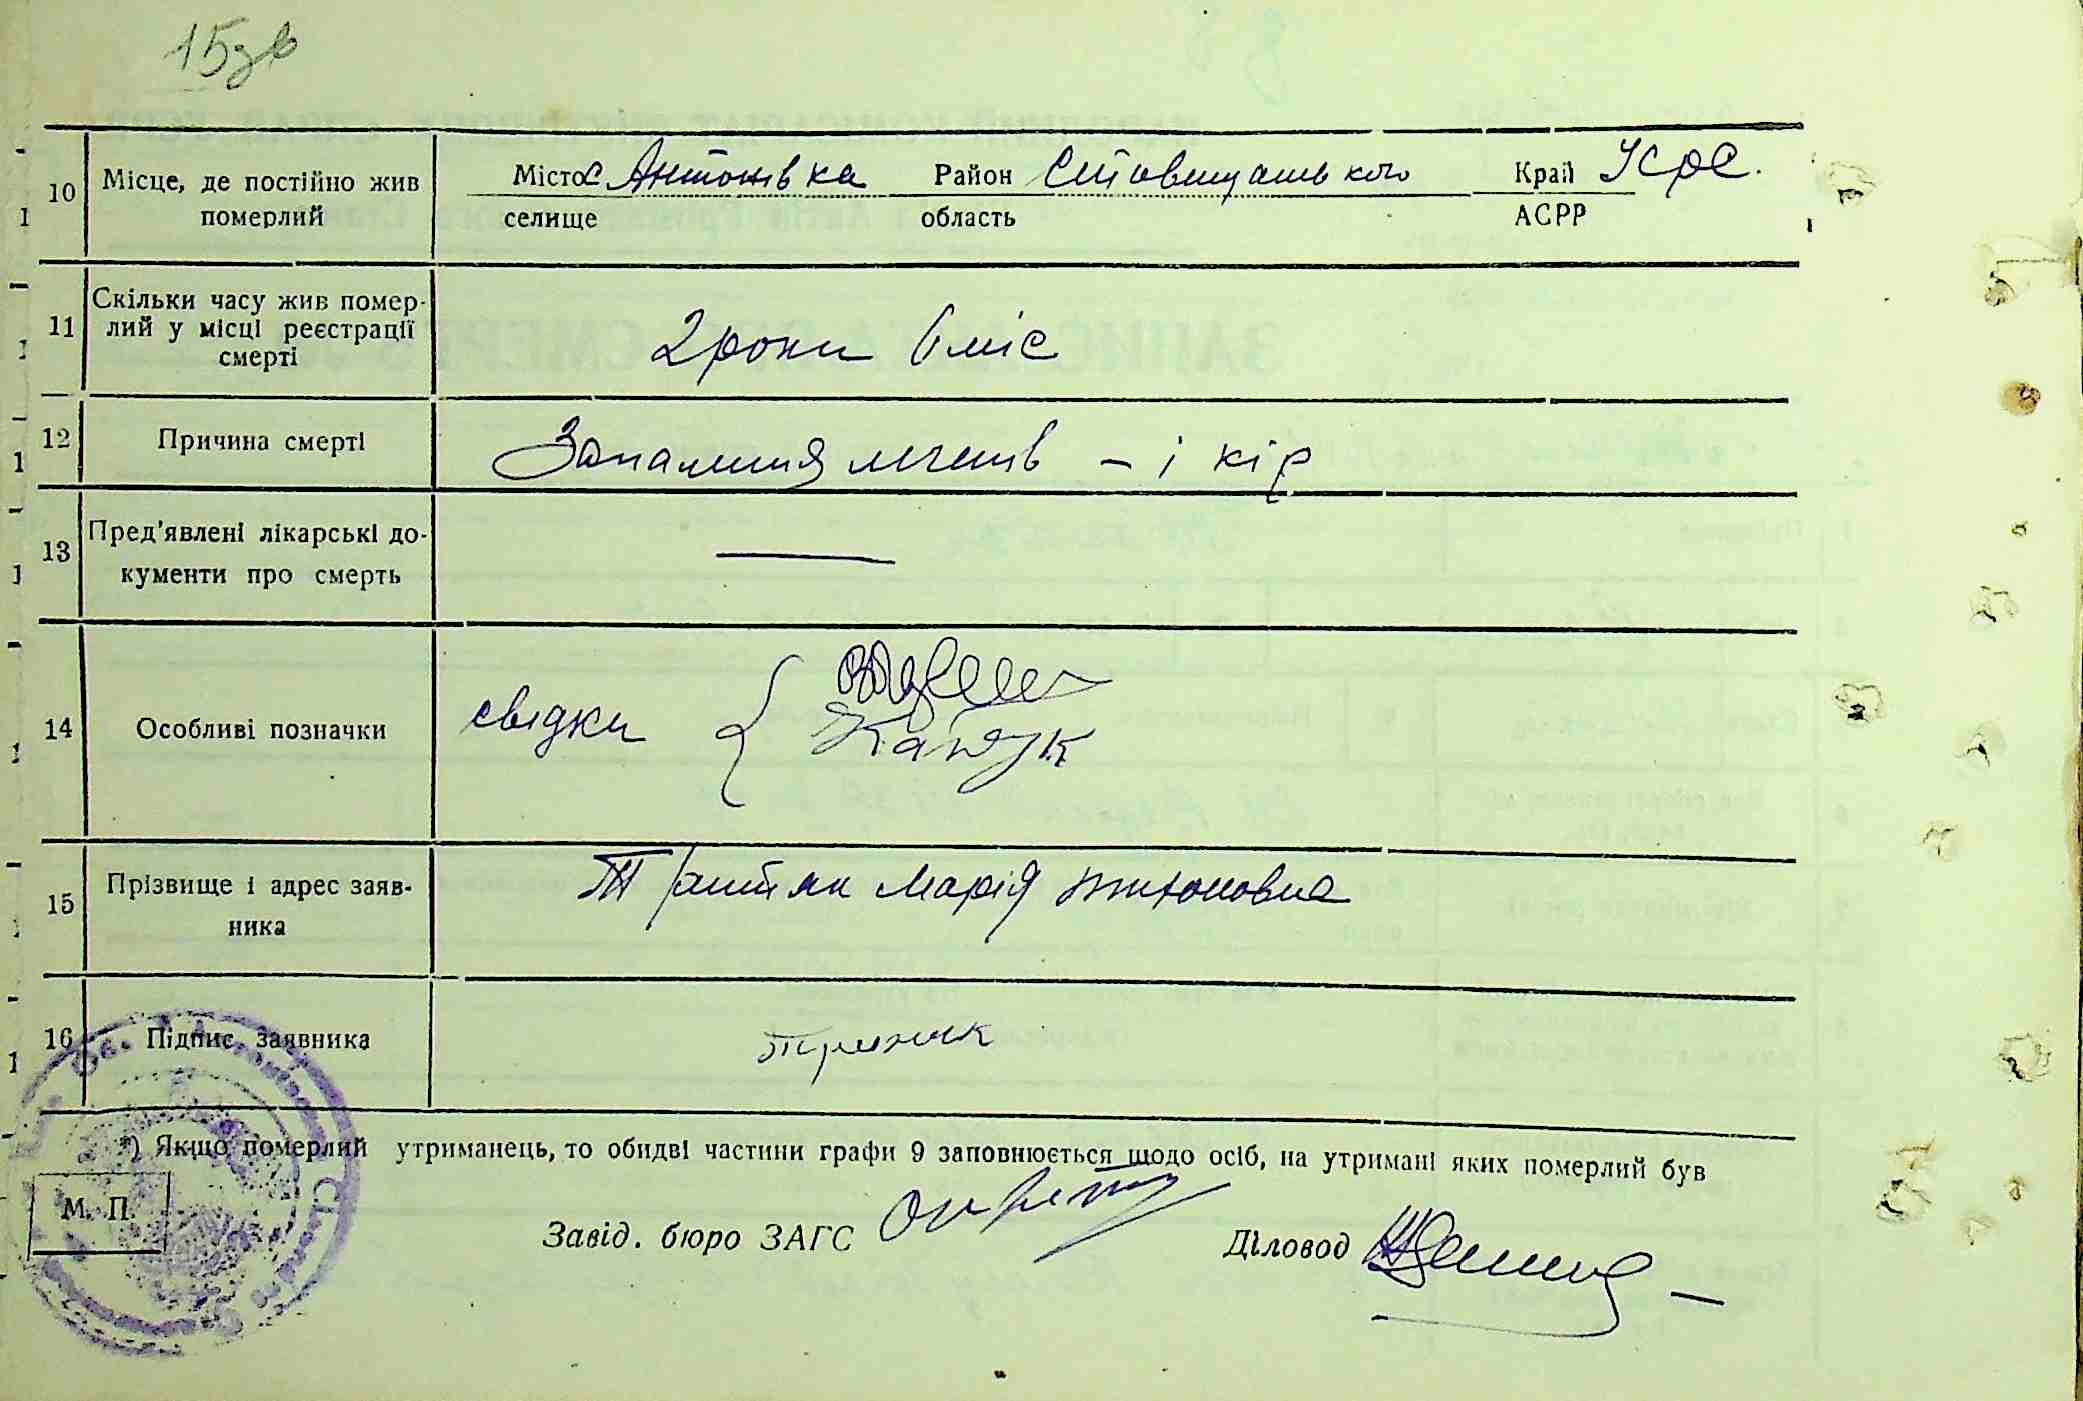 15зв
10 Місце, де постійно жив померлий
Місто с Антонівка Район Ставищанського Край УСРС.
селище область АСРР
11 Скільки часу жив помер-
лий у місці реєстрації
смерті
2 роки 6 міс
12 Причина смерті
Запалення легенів – і кір
13 Пред'явлені лікарські до-
кументи про смерть
14 Особливі позначки
свідки
15 Прізвище і адрес заяв-
ника
Марія
16 Підпис заявника
*) Якщо померлий утриманець, то обидві частини графи 9 заповнюється щодо осіб, на утримані яких померлий був
М. П.
Завід. бюро ЗАГС
Діловод